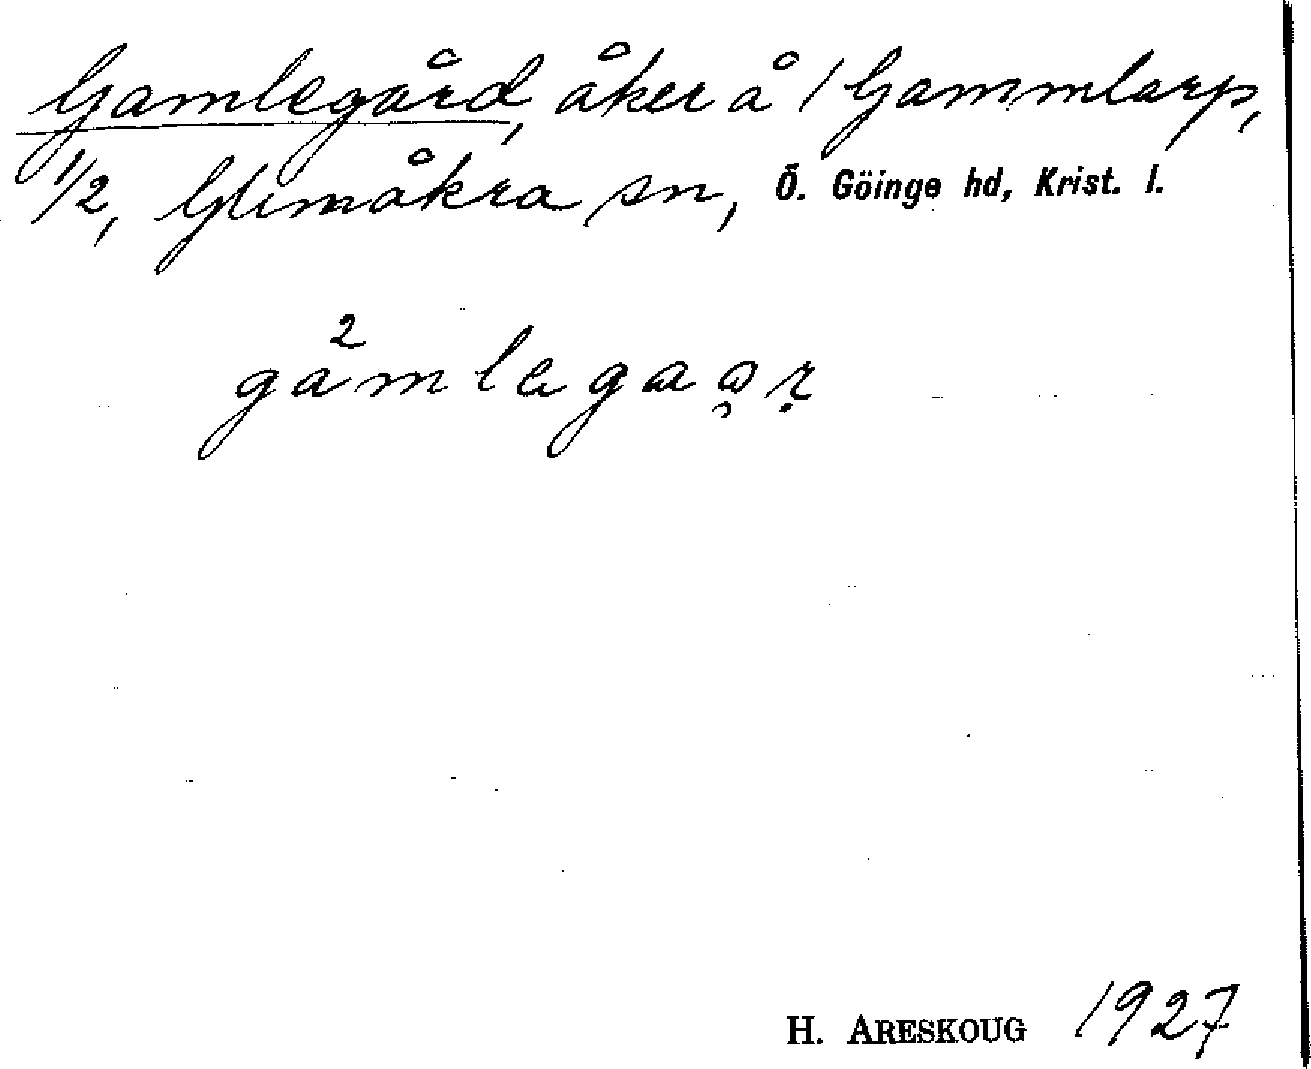 Gamlegård, åker å 1 Gammlarp,
1/2, Glimåkra sn, Ö. Göinge hd, Krist. l.
H. ARESKOUG 1927